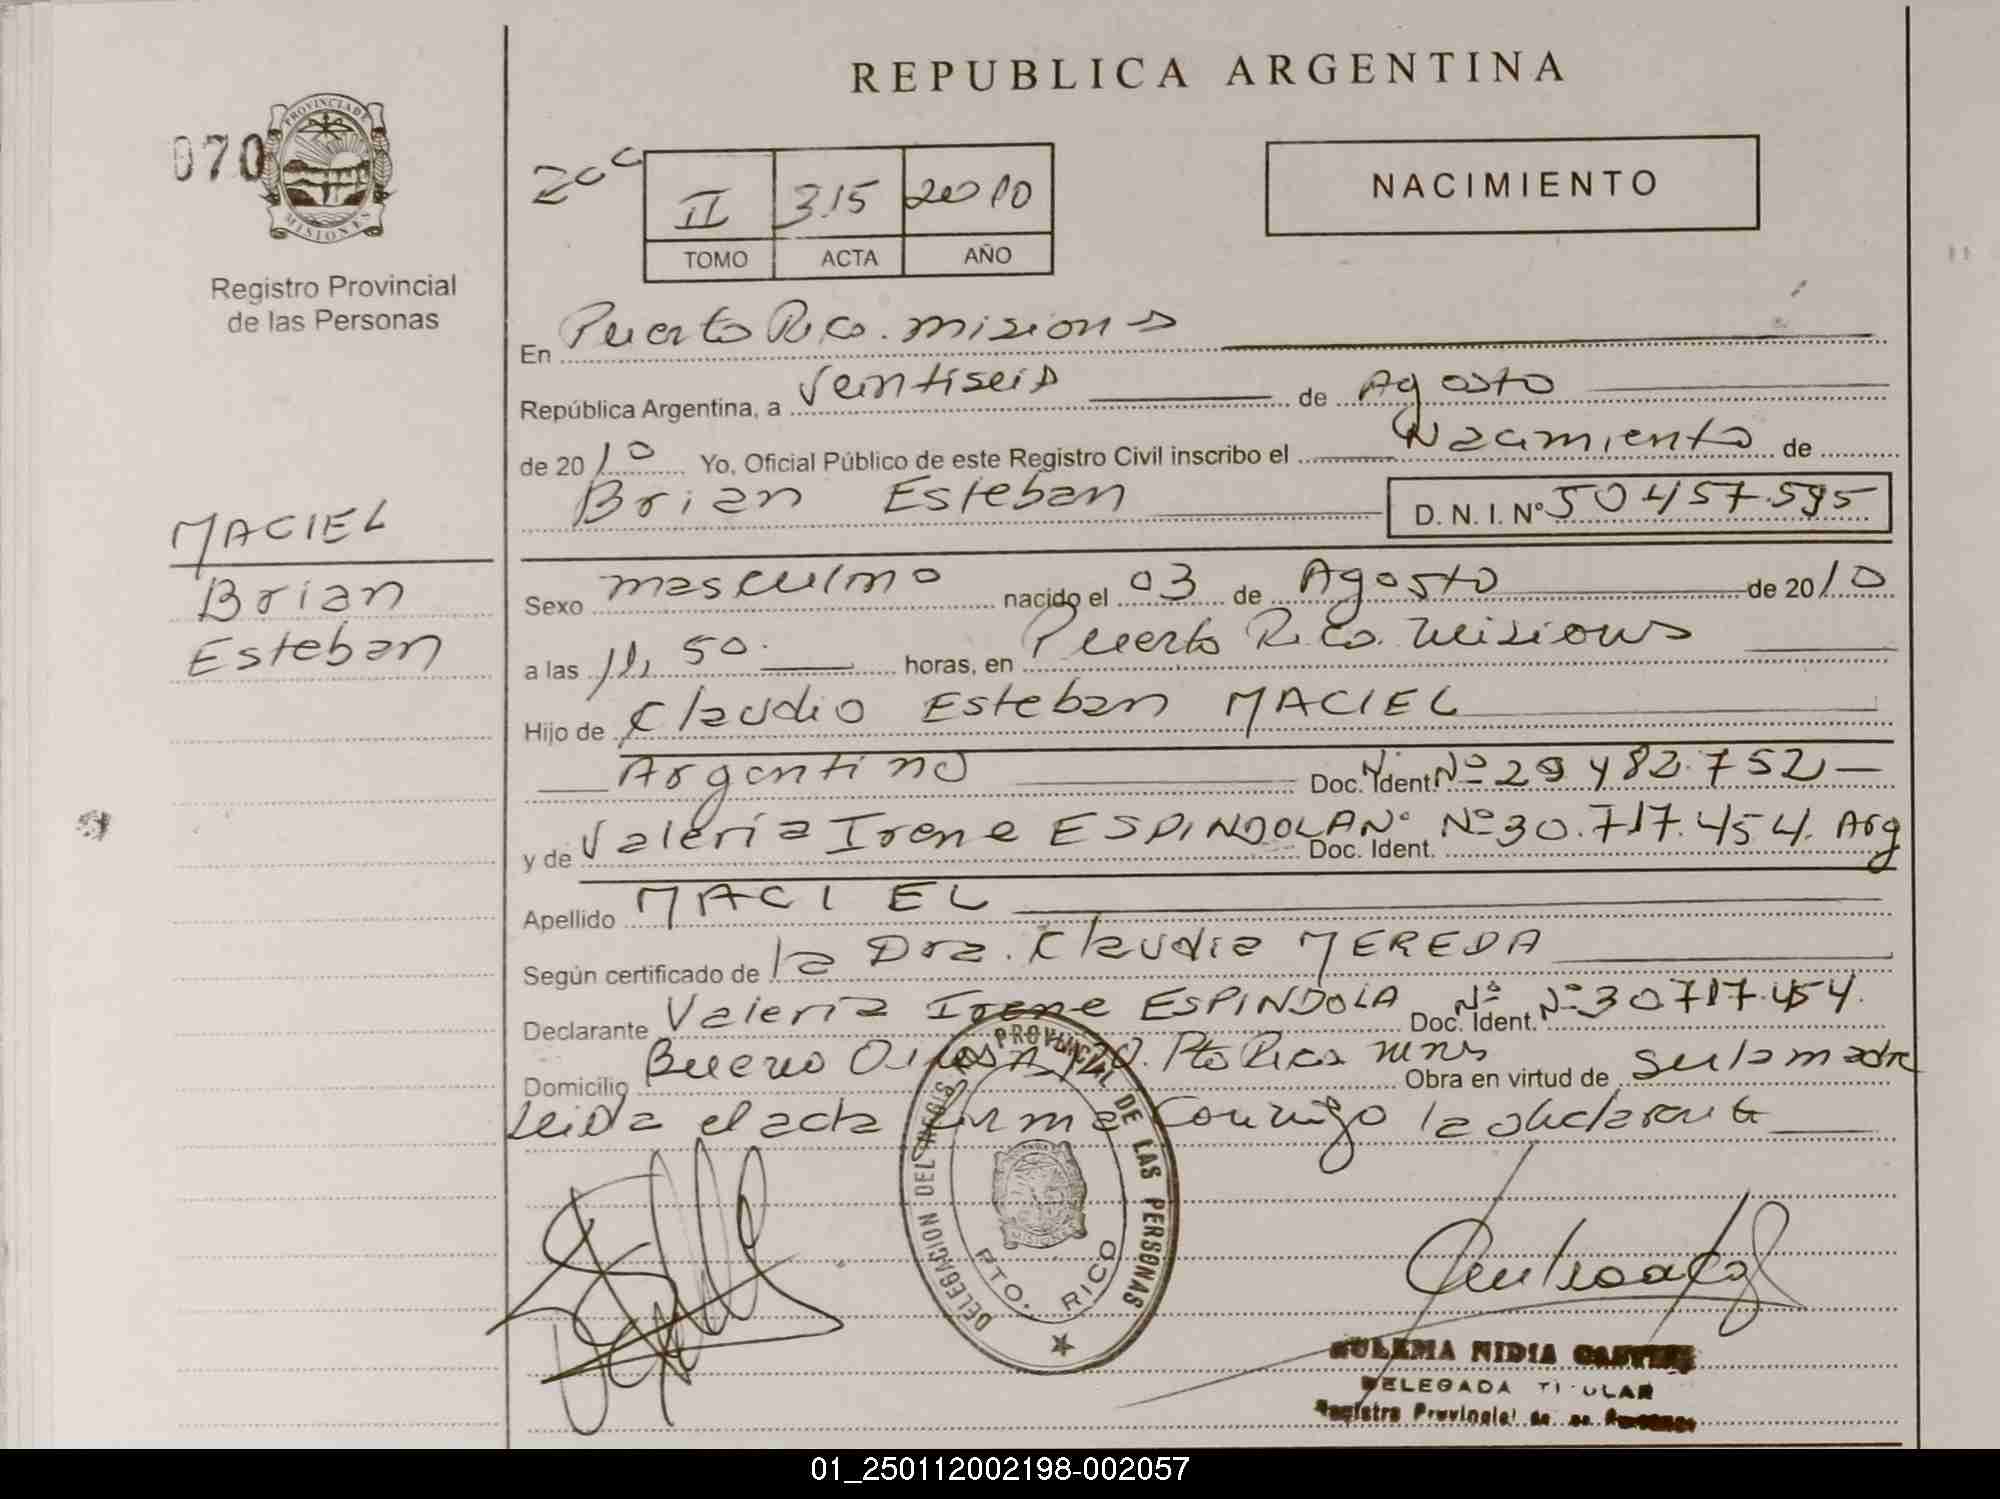 REPUBLICA ARGENTINA
070
PROVINCIA DE
MISIONES
Registro Provincial
de las Personas
II 315 2010
TOMO ACTA AÑO
NACIMIENTO
En Puerto Rico. Misiones
República Argentina, a Veintiseis de Agosto
de 2010 Yo, Oficial Público de este Registro Civil inscribo el Nacimiento de
Brian Esteban D. N. I. Nº 50.457.595
MACIEL
Brian
Esteban
Sexo masculino nacido el 03 de Agosto de 2010
a las 50. horas, en Puerto Rico. Misiones
Hijo de Claudio Esteban MACIEL
Argentino Doc. Ident. Nº 29.482.752
y de Valeria Irene ESPINDOLA Doc. Ident. Nº 30.717.454. Arg
Apellido MACIEL
Según certificado de la Dra. Claudia MEREDA
Declarante Valeria Irene ESPINDOLA Doc. Ident. Nº 30717.454.
Domicilio Pto Rico Mnes Obra en virtud de ser la madre
Leida el acta firma conmigo la declarante
DELEGACION DEL REGISTRO PROVINCIAL DE LAS PERSONAS
MISIONES
PTO. RICO
ZULEMA NIDIA
DELEGADA TITULAR
Registro Provincial de
01_250112002198-002057